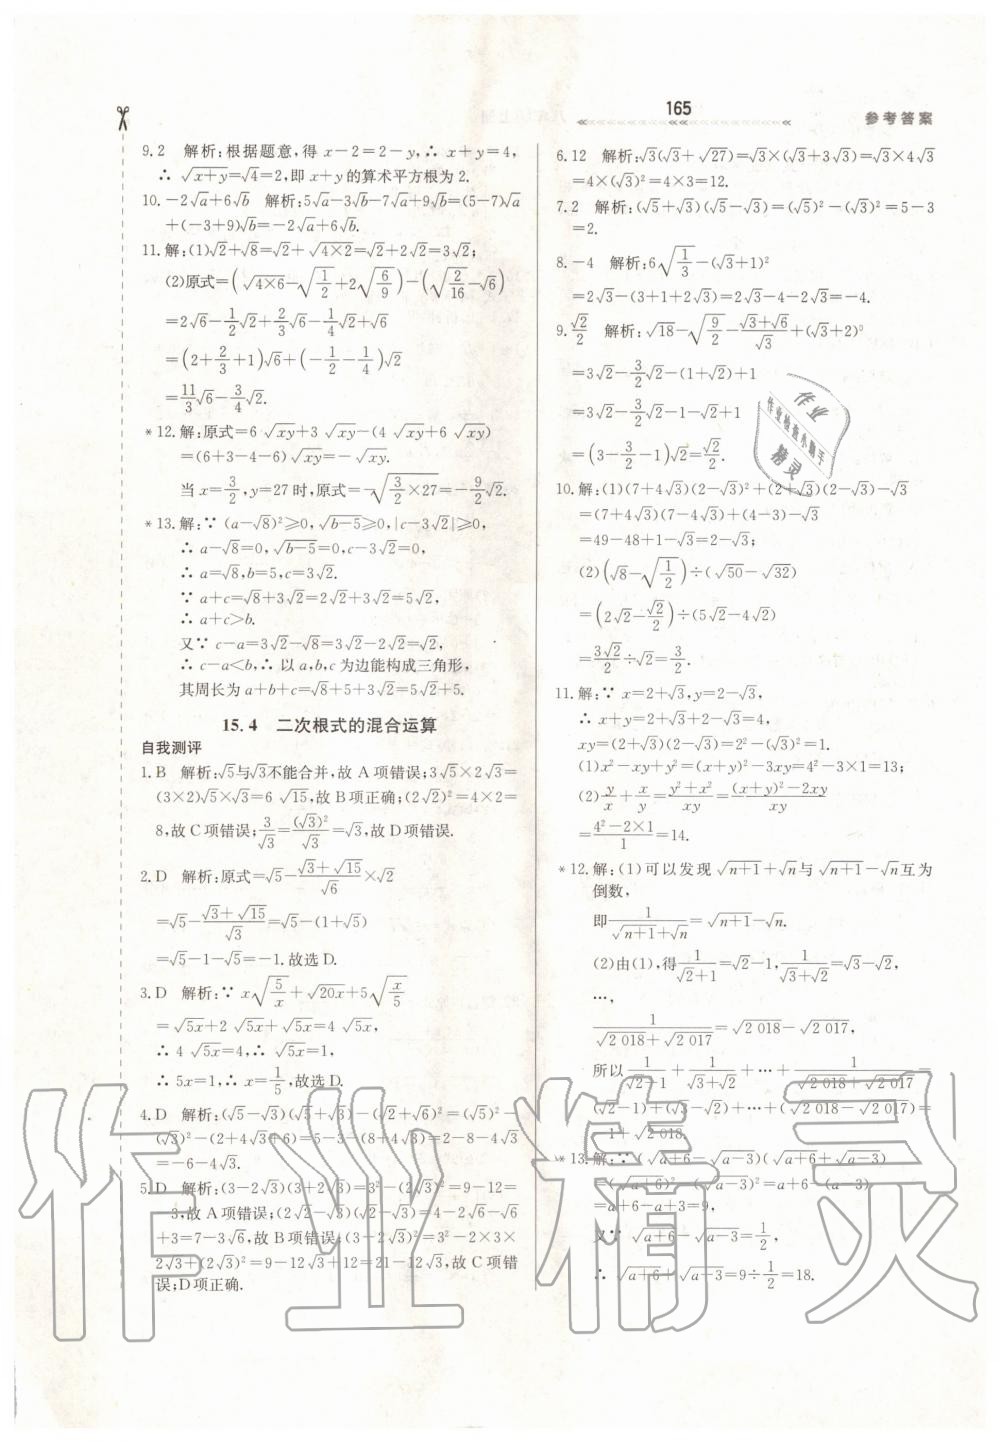 165
参考答案
9.2 解析:根据题意,得 x-2=2-y,∴ x+y=4,
∴ √(x+y)=√4=2,即 x+y 的算术平方根为 2.
10.-2√a+6√b 解析:5√a-3√b-7√a+9√b=(5-7)√a
+(-3+9)√b=-2√a+6√b.
11.解:(1)√2+√8=√2+√(4×2)=√2+2√2=3√2;
(2)原式=(√(4×6)-√(1/2)+2√(6/9))-(√(2/16)-√6)
=2√6-1/2√2+2/3√6-1/4√2+√6
=(2+2/3+1)√6+(-1/2-1/4)√2
=11/3√6-3/4√2.
*12.解:原式=6√(xy)+3√(xy)-(4√(xy)+6√(xy))
=(6+3-4-6)√(xy)=-√(xy).
当 x=3/2,y=27 时,原式=-√(3/2×27)=-9/2√2.
*13.解:∵ (a-√8)²≥0,√(b-5)≥0,|c-3√2|≥0,
∴ a-√8=0,√(b-5)=0,c-3√2=0,
∴ a=√8,b=5,c=3√2.
∵ a+c=√8+3√2=2√2+3√2=5√2,
∴ a+c>b.
又∵ c-a=3√2-√8=3√2-2√2=√2,
∴ c-a<b,∴ 以 a,b,c 为边能构成三角形,
其周长为 a+b+c=√8+5+3√2=5√2+5.
15.4 二次根式的混合运算
自我测评
1.B 解析:√5与√3不能合并,故 A 项错误;3√5×2√3=
(3×2)√5×√3=6√15,故 B 项正确;(2√2)²=4×2=
8,故 C 项错误;3/√3=(√3)²/√3=√3,故 D 项错误.
2.D 解析:原式=√5-(√3+√15)/√6×√2
=√5-(√3+√15)/√3=√5-(1+√5)
=√5-1-√5=-1.故选 D.
3.D 解析:∵ x√(5/x)+√(20x)+5√(x/5)
=√(5x)+2√(5x)+√(5x)=4√(5x),
∴ 4√(5x)=4,∴ √(5x)=1,
∴ 5x=1,∴ x=1/5,故选 D.
4.D 解析:(√5-√3)(√5+√3)-(√2+√6)²=(√5)²-
(√3)²-(2+4√3+6)=5-3-(8+4√3)=2-8-4√3
=-6-4√3.
5.D 解析:(3-2√3)(3+2√3)=3²-(2√3)²=9-12=
-3,故 A 项错误;(2√2-√3)(√2-√3)=4-2√6-√6
+3=7-3√6,故 B 项错误;(3-2√3)²=3²-2×3×
2√3+(2√3)²=9-12√3+12=21-12√3,故 C 项错
误;D 项正确.
6.12 解析:√3(√3+√27)=√3×(√3+3√3)=√3×4√3
=4×(√3)²=4×3=12.
7.2 解析:(√5+√3)(√5-√3)=(√5)²-(√3)²=5-3
=2.
8.-4 解析:6√(1/3)-(√3+1)²
=2√3-(3+1+2√3)=2√3-4-2√3=-4.
9.√2/2 解析:√18-√(9/2)-(√3+√6)/√3+(√3+2)⁰
=3√2-3/2√2-(1+√2)+1
=3√2-3/2√2-1-√2+1
=(3-3/2-1)√2=√2/2.
10.解:(1)(7+4√3)(2-√3)²+(2+√3)(2-√3)-√3
=(7+4√3)(7-4√3)+(4-3)-√3
=49-48+1-√3=2-√3;
(2)(√8-√(1/2))÷(√50-√32)
=(2√2-√2/2)÷(5√2-4√2)
=3√2/2÷√2=3/2.
11.解:∵ x=2+√3,y=2-√3,
∴ x+y=2+√3+2-√3=4,
xy=(2+√3)(2-√3)=2²-(√3)²=1.
(1)x²-xy+y²=(x+y)²-3xy=4²-3×1=13;
(2)y/x+x/y=(y²+x²)/xy=((x+y)²-2xy)/xy
=(4²-2×1)/1=14.
*12.解:(1)可以发现√(n+1)+√n与√(n+1)-√n互为
倒数,
即1/(√(n+1)+√n)=√(n+1)-√n.
(2)由(1),得1/(√2+1)=√2-1,1/(√3+√2)=√3-√2,
…,
1/(√2 018+√2 017)=√2 018-√2 017,
所以1/(√2+1)+1/(√3+√2)+…+1/(√2 018+√2 017)=
(√2-1)+(√3-√2)+…+(√2 018-√2 017)=
-1+√2 018.
*13.解:∵ (√(a+6)-√(a-3))(√(a+6)+√(a-3))
=(√(a+6))²-(√(a-3))²=a+6-(a-3)
=a+6-a+3=9,
又∵ √(a+6)-√(a-3)=1/2,
∴ √(a+6)+√(a-3)=9÷1/2=18.
作业
作业检查小助手
精灵
作业精灵